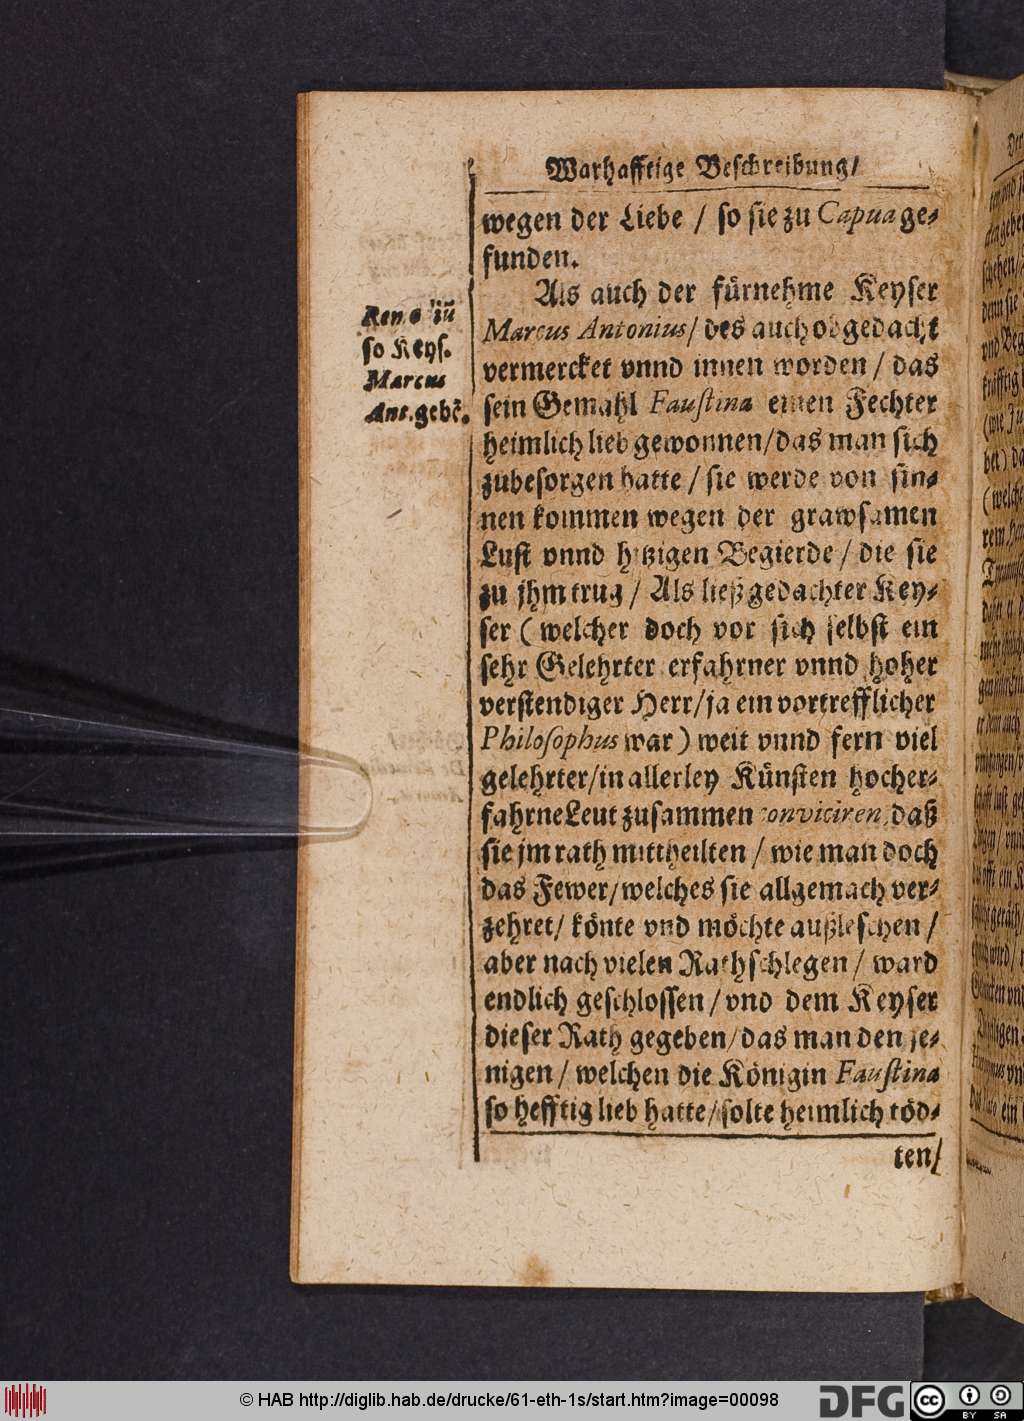 Warhafftige Beschreibung/
wegen der Liebe / so sie zu Capua ge-
funden.
Als auch der fürnehme Keyser
Marcus Antonius/ des auch obgedacht
vermercket vnnd innen worden / das
sein Gemahl Faustina einen Fechter
heimlich lieb gewonnen/das man sich
zubesorgen hatte / sie werde von sin-
nen kommen wegen der grawsamen
Lust vnnd hitzigen Begierde / die sie
zu jhm trug / Als ließ gedachter Key-
ser ( welcher doch vor sich selbst ein
sehr Gelehrter erfahrner vnnd hoher
verstendiger Herr/ja ein vortrefflicher
Philosophus war ) weit vnnd fern viel
gelehrter/in allerley Künsten hocher-
fahrne Leut zusammen conviciren, daß
sie jm rath mittheilten / wie man doch
das Fewer/welches sie allgemach ver-
zehret/ könte vnd möchte außleschen /
aber nach vielen Rathschlegen / ward
endlich geschlossen / vnd dem Keyser
dieser Rath gegeben/das man den je-
nigen / welchen die Königin Faustina
so hefftig lieb hatte/solte heimlich töd-
ten/
so Keys.
Marcus
Ant. gebē.
© HAB http://diglib.hab.de/drucke/61-eth-1s/start.htm?image=00098
DFG
cc
BY SA